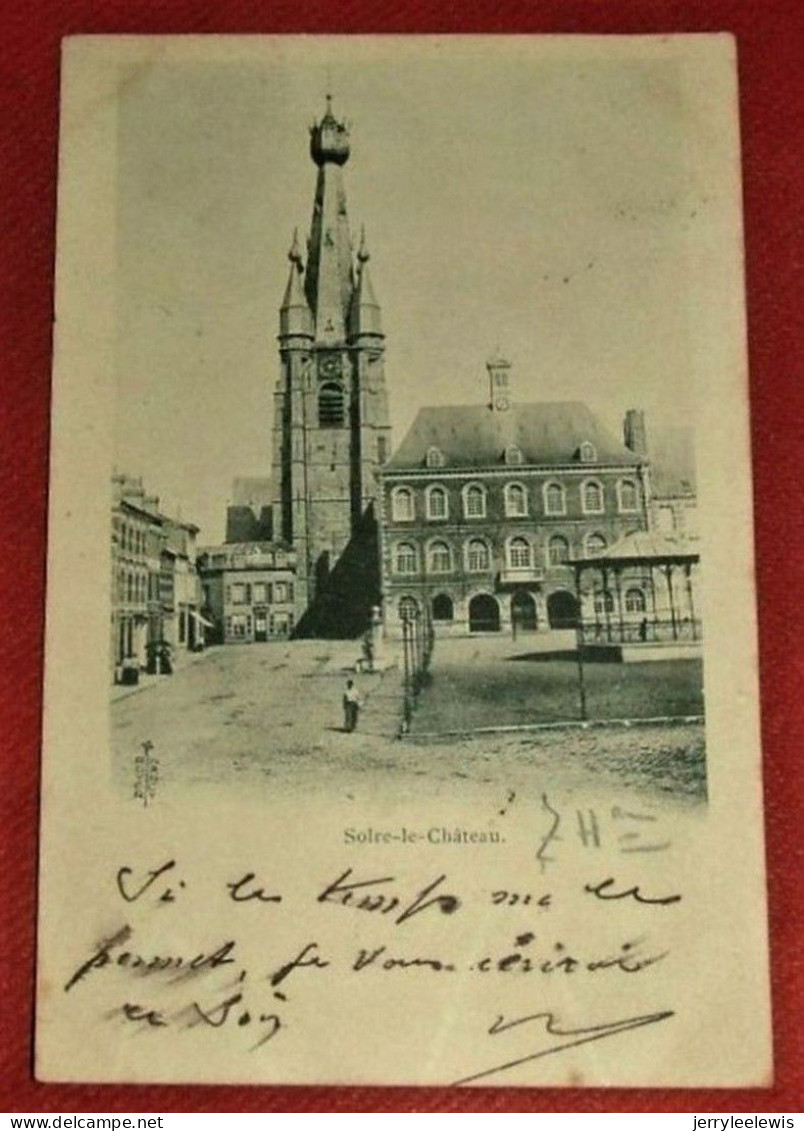 Solre-le-Château.
Si le temps me le
permet, je vous écrirai
ce soir
www.delcampe.net
jerryleelewis